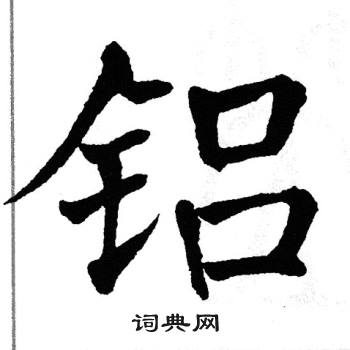 铝
词典网